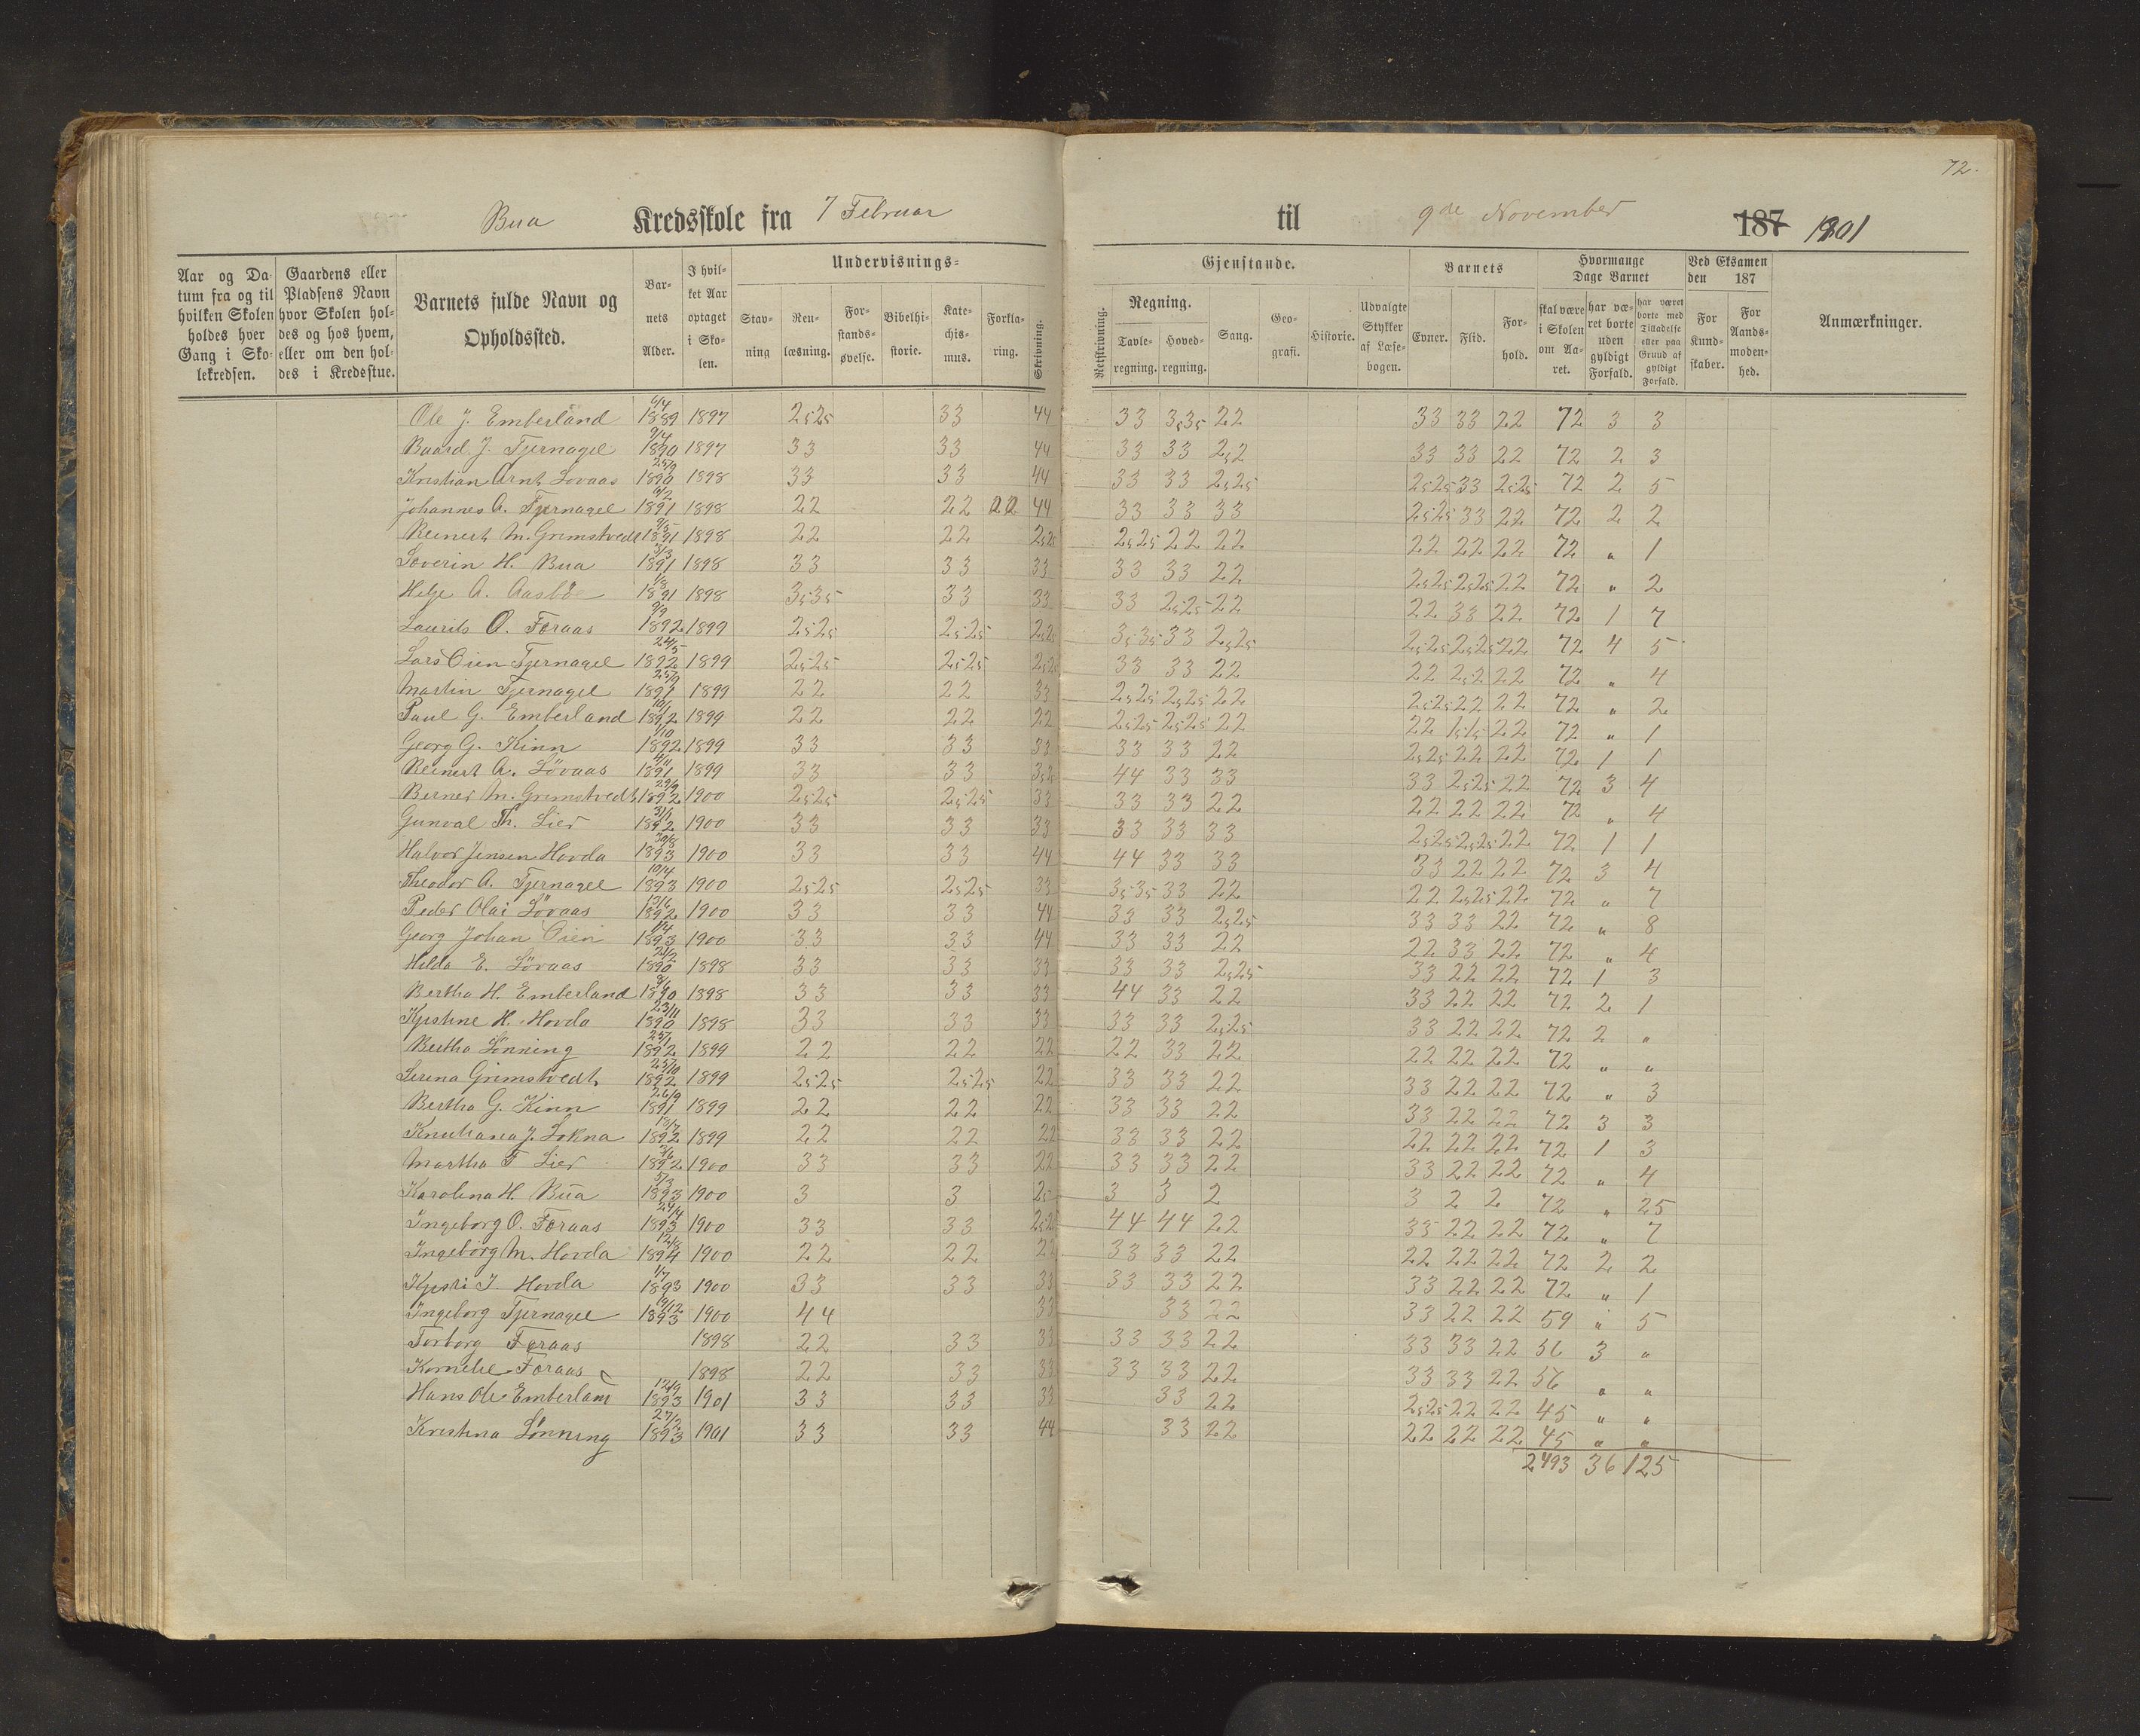 72.
Bua Kredsskole fra 7 Februar til 9de November 187 1901
Undervisnings= Gjenstande.
Aar og Datum fra og til hvilken Skolen holdes hver Gang i Skolekredsen.
Gaardens eller Pladsens Navn hvor Skolen holdes og hos hvem, eller om den holdes i Kredsstue.
Barnets fulde Navn og Opholdssted.
Barnets Alder.
I hvilket Aar optaget i Skolen.
Stavning
Renlæsning.
Forstandsøvelse.
Bibelhistorie.
Katechismus.
Forklaring.
Skrivning.
Retskrivning.
Regning.
Tavleregning.
Hovedregning.
Sang.
Geografi.
Historie.
Udvalgte Stykker af Læsebogen.
Barnets
Evner.
Flid.
Forhold.
Hvormange Dage Barnet
skal være i Skolen om Aaret.
har været borte uden gyldigt Forfald.
har været borte med Tilladelse eller paa Grund af gyldigt Forfald.
Ved Eksamen den 187
For Kundskaber.
For Aandsmodenhed.
Anmærkninger.
Ole J. Emberland 6/4 1889 1897 2,5 2,5 33 44 33 3,5 3,5 22 33 33 22 72 3 3
Baard J. Tjernagel 9/4 1890 1897 33 33 44 33 33 2,2 33 33 22 72 2 3
Kristian Arnt Lövaas 25/9 1890 1898 33 33 44 33 33 2,5 2,5 2,5 2,5 33 2,5 2,5 72 2 5
Johannes A. Tjernagel 1891 1898 22 22 22 44 33 33 33 2,5 2,5 33 22 72 2 2
Reinert M. Grimstvedt 9/5 1891 1898 22 22 2,5 2,5 2,5 2,5 22 22 22 22 22 72 " 1
Soverin H. Bua 3/3 1891 1898 33 33 33 33 33 22 2,5 2,5 2,5 2,5 22 72 " 2
Helge A. Aasbö 1/8 1891 1898 3,5 3,5 33 33 33 2,5 2,5 22 22 33 22 72 1 7
Laurits O. Foraas 9/9 1892 1899 2,5 2,5 2,5 2,5 2,5 2,5 3,5 3,5 33 2,5 2,5 2,5 2,5 2,5 2,5 22 72 4 5
Lars Oien Tjernagel 24/5 1892 1899 2,5 2,5 2,5 2,5 2,5 2,5 33 33 22 22 2,2 22 72 " 4
Martin Tjernagel 25/9 1891 1899 22 22 33 2,5 2,5 2,5 2,5 22 2,5 2,5 22 22 72 " 2
Paul G. Emberland 10/1 1892 1899 22 22 22 2,5 2,5 2,5 2,5 22 22 1,5 1,5 22 72 " 1
Georg G. Kinn 1/10 1892 1899 33 33 33 33 33 22 2,5 2,5 22 22 72 1 1
Reinert A. Lövaas 1891 1899 33 33 3,5 3,5 44 33 33 33 2,5 2,5 22 72 3 4
Berner M. Grimstvedt 29/9 1892 1900 2,5 2,5 2,5 2,5 33 33 33 22 22 22 22 72 " 4
Gunval Th. Lier 31/1 1892 1900 33 33 33 33 33 33 2,5 2,5 2,5 2,5 22 72 1 1
Halvor Jensen Hovda 30/8 1893 1900 33 33 44 44 33 33 33 22 22 72 3 4
Theodor A. Tjernagel 10/4 1893 1900 2,5 2,5 2,5 2,5 33 3,5 3,5 33 22 22 2,5 2,5 22 72 " 7
Peder Olai Lövaas 1892 1900 33 33 44 33 33 2,5 2,5 33 33 22 72 " 8
Georg Johan Oien 1893 1900 33 33 44 33 33 22 22 33 22 72 " 4
Hilda E. Lövaas 21/2 1890 1898 33 33 33 33 33 2,5 2,5 33 22 22 72 1 3
Bertha H. Emberland 1890 1898 33 33 33 44 33 22 33 22 22 72 2 1
Kjestine H. Hovda 23/11 1890 1898 33 33 33 33 33 2,5 2,5 33 22 22 72 2 "
Bertha Lönning 25/1 1892 1899 22 22 22 22 33 22 22 22 22 72 " "
Serina Grimstvedt 25/10 1892 1899 2,5 2,5 2,5 2,5 22 33 33 22 33 22 22 72 " 3
Bertha G. Kinn 26/9 1891 1899 22 22 22 33 33 22 33 22 22 72 3 3
Knuthana J. Lokna 13/7 1892 1899 22 22 22 33 33 22 22 22 22 72 1 3
Martha T Lier 3/6 1892 1900 33 33 22 33 33 22 33 22 22 72 " 4
Karolina H. Bua 5/3 1893 1900 3 3 2,5 3 3 2 3 2 2 72 " 25
Ingeborg O. Foraas 24/4 1893 1900 33 33 2,5 2,5 44 44 22 33 22 22 72 " 7
Ingeborg M. Hovda 12/8 1894 1900 22 22 22 33 33 22 22 22 22 72 2 2
Kjestri I. Hovda 1/7 1893 1900 33 33 33 33 33 22 33 22 22 72 " 1
Ingeborg Tjernagel 19/12 1893 1900 44 33 33 22 33 22 22 59 " 5
Torborg Foraas 1898 22 33 33 33 33 22 33 33 22 56 3 "
Kornelie Foraas 1898 22 33 33 33 33 22 33 33 22 56 " "
Hans Ole Emberland 12/9 1893 1901 33 33 33 33 22 2,5 2,5 22 22 45 " "
Kristina Lönning 27/2 1893 1901 33 33 44 33 22 22 22 22 45 " "
2493 36 125